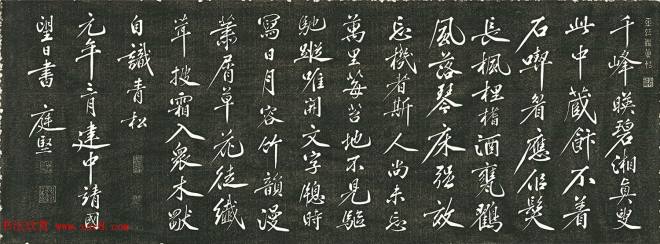 千峰暎碧湘真叟
此中藏飰不着
石喫眉應似髮
長楓桯榰酒甕鶴
風落琴床強放
忘機者斯人尚未忘
萬里莓苔地不見驅
馳蹤唯開文字牕時
寫日月容竹韻漫
蕭屑草花徒纖
茸披霜入衆木獨
自識青松
元年三月建中靖國
望日書 庭堅